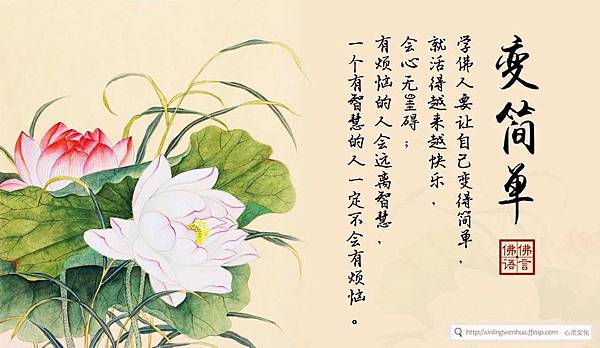 变简单
佛言
佛语
学佛人要让自己变得简单，
就活得越来越快乐，
会心无罣碍；
有烦恼的人会远离智慧，
一个有智慧的人一定不会有烦恼。
http://xinlingwenhua.ffsip.com
心灵文化